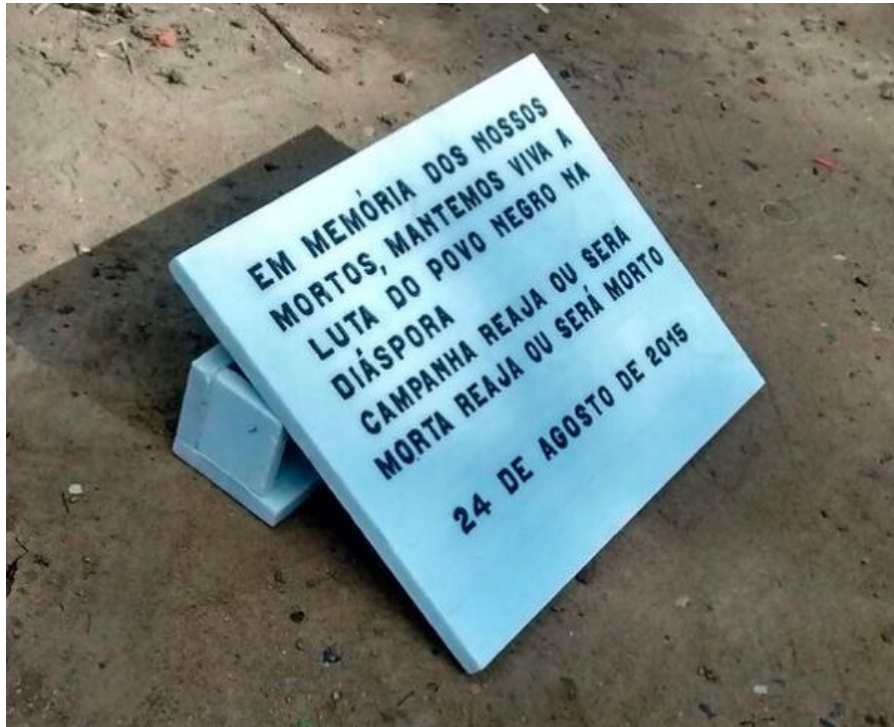 EM MEMÓRIA DOS NOSSOS
MORTOS, MANTEMOS VIVA A
LUTA DO POVO NEGRO NA
DIÁSPORA
CAMPANHA REAJA OU SERÁ
MORTA REAJA OU SERÁ MORTO
24 DE AGOSTO DE 2015